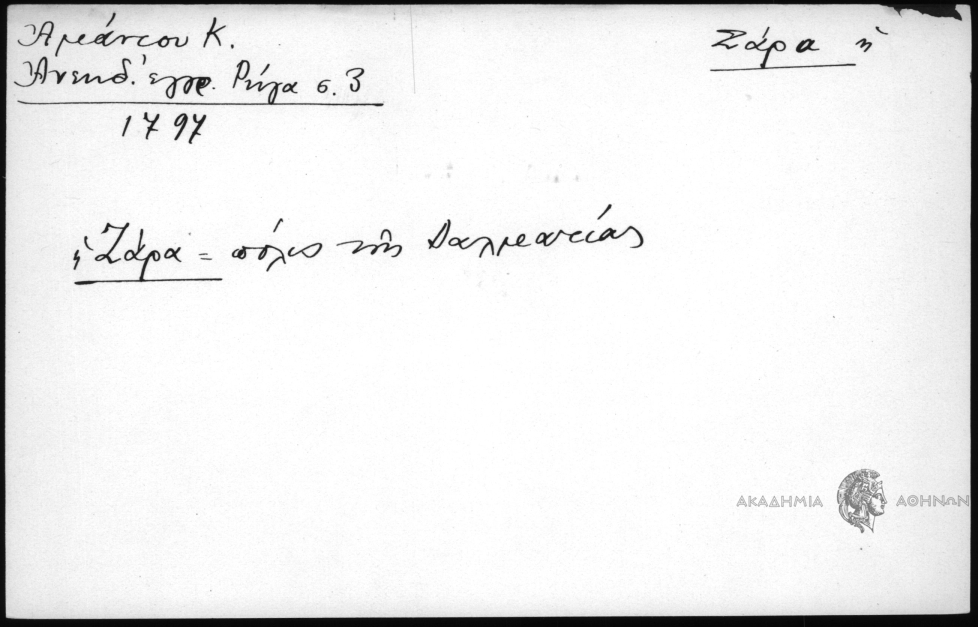 Ἀμάντου Κ.
Ἀνεκδ. ἔγγρ. Ρήγα σ. 3
1797
Ζάρα ἡ
ἡ Ζάρα = πόλις τῆς Δαλματίας
ΑΚΑΔΗΜΙΑ ΑΘΗΝΩΝ